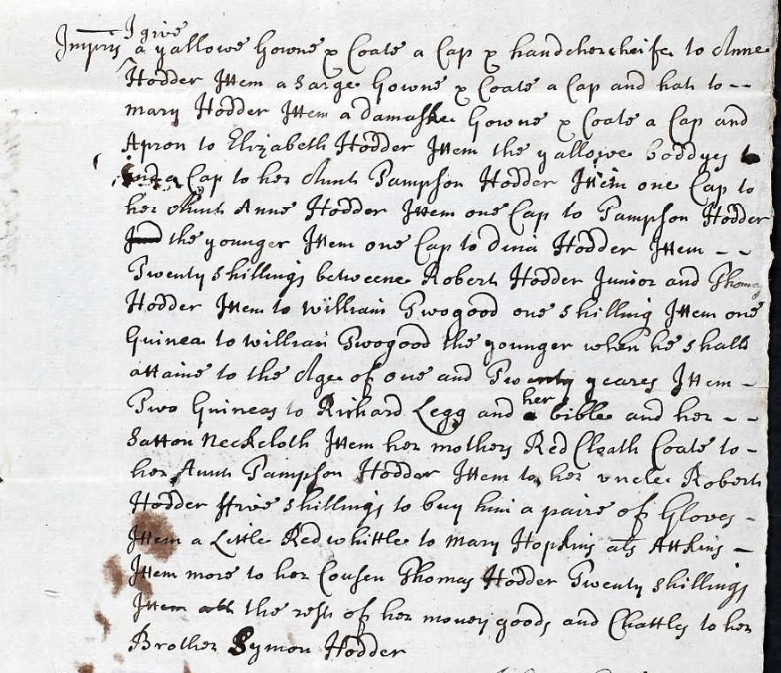 I give
Imprs a yallowe Gowne & Coate a Cap & handchercheife to Anne
Hodder Item a Sarge Gowne & Coate a Cap and hat to --
Mary Hodder Item a damaske Gowne & Coate a Cap and
Apron to Elizabeth Hodder Item the yallowe boddyes
a Cap to her Aunt Tampson Hodder Item one Cap to
her Aunt Anne Hodder Item one Cap to Tampson Hodder
the younger Item one Cap to dina Hodder Item - -
Twenty shillings betweene Robert Hodder Junior and Thomas
Hodder Item to william Twogood one shilling Item one
Guinea to william Twogood the younger when he shall
attaine to the Age of one and Twenty yeares Item -
her
Two Guineas to Richard Legg and bible and her - -
Satton Neckcloth Item her mothers Red Cloath Coate to -
her Aunt Tampson Hodder Item to her uncle Robert
Hodder ffive shillings to buy him a paire of Gloves -
Item a Little Red whittle to Mary Hopkins als Attkins -
Item more to her Cousen Thomas Hodder Twenty shillings
Item all the rest of her money goods and Chattles to her
Brother Symon Hodder